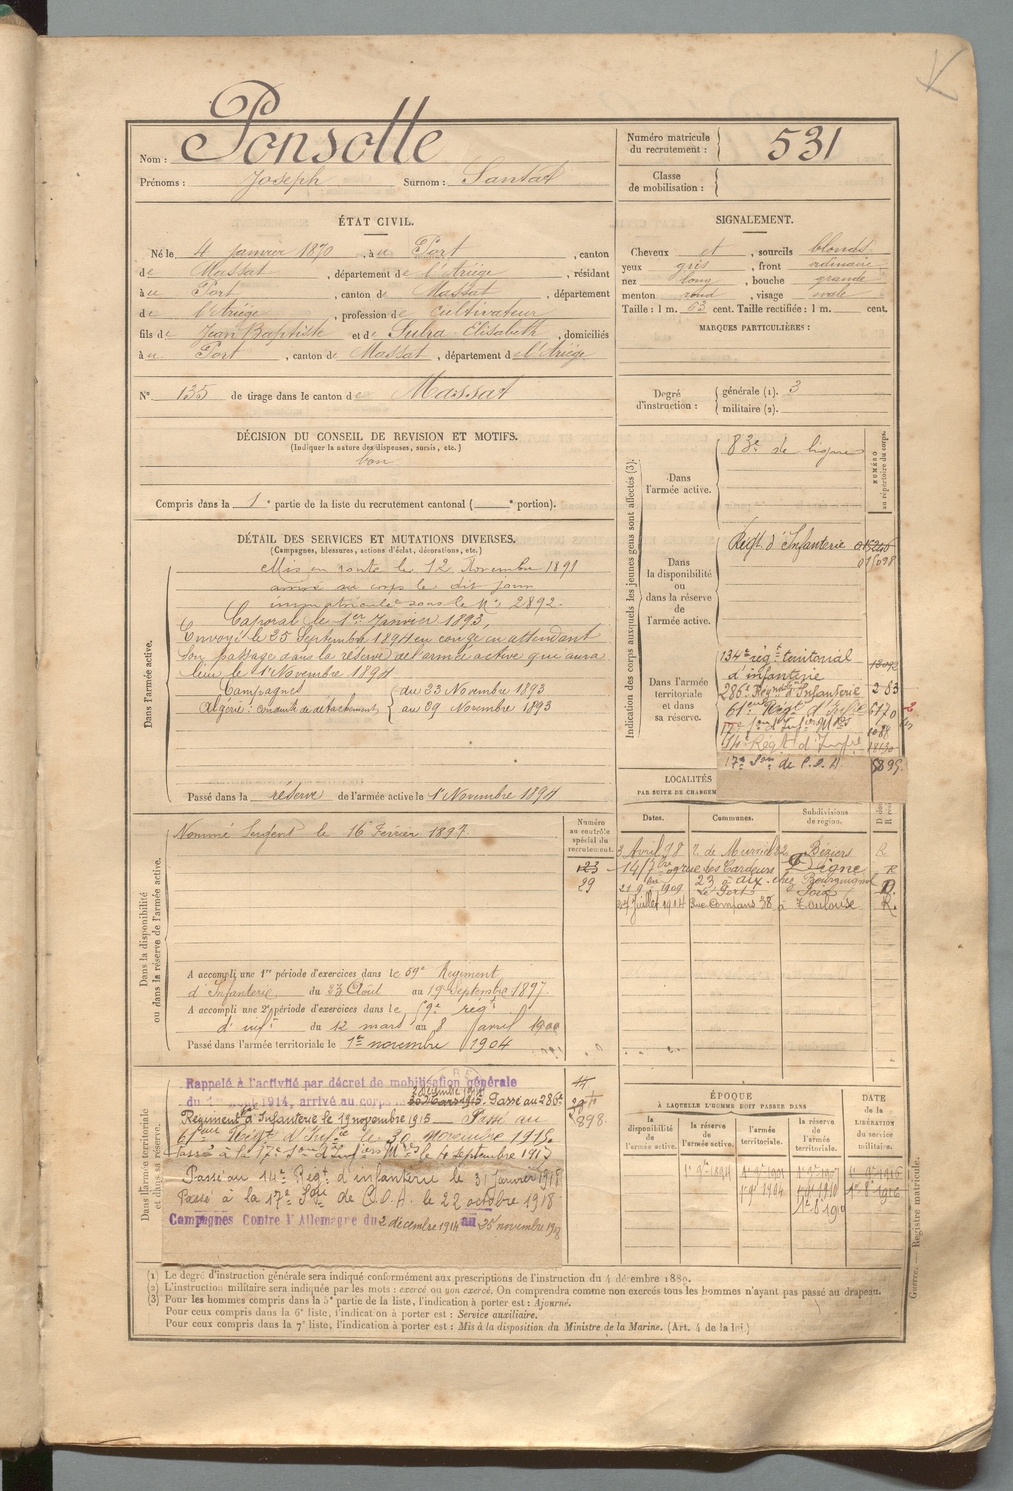 Nom : Ponsolle
Prénoms : Joseph Surnom : Santat
Numéro matricule du recrutement : 531
Classe de mobilisation :
ÉTAT CIVIL.
Né le 4 Janvier 1870, à u Port, canton
de Massat, département de l'Ariège, résidant
à u Port, canton de Massat, département
de l'Ariège, profession de cultivateur
fils de Jean Baptiste et de Sutra Elisabeth, domiciliés
à u Port, canton de Massat, département de l'Ariège
N° 135 de tirage dans le canton de Massat
SIGNALEMENT.
Cheveux et, sourcils blonds
yeux gris, front ordinaire
nez long, bouche grande
menton rond, visage ovale
Taille : 1 m. 63 cent. Taille rectifiée : 1 m. cent.
MARQUES PARTICULIÈRES :
Degré d'instruction : générale (1). 3
militaire (2).
DÉCISION DU CONSEIL DE REVISION ET MOTIFS.
(Indiquer la nature des dispenses, sursis, etc.)
bon
Compris dans la 1e partie de la liste du recrutement cantonal ( e portion).
DÉTAIL DES SERVICES ET MUTATIONS DIVERSES.
(Campagnes, blessures, actions d'éclat, décorations, etc.)
Dans l'armée active.
Mis en route le 12 Novembre 1891
arrivé au corps le dit jour
immatriculé sous le N° 2892.
Caporal le 1er Janvier 1893,
Envoyé le 25 Septembre 1894 en congé en attendant
son passage dans la réserve de l'armée active qui aura
lieu le 1 Novembre 1894
Campagnes
Algérie : conduite de détachements
du 23 Novembre 1893
au 29 Novembre 1893
Passé dans la réserve de l'armée active le 1 Novembre 1894
Indication des corps auxquels les jeunes gens sont affectés (3).
NUMÉRO au répertoire du corps.
Dans l'armée active.
83e de ligne
Dans la disponibilité ou dans la réserve de l'armée active.
Régt d'Infanterie
Dans l'armée territoriale et dans sa réserve.
134e régt territorial
d'infanterie
286e Régt d'Infanterie 283
61eme Régt d'Infie 5170
17e Son d'Infiers Mres 1088
14e Régt d'Infie
17e Son de C.O.A. 5899
Dans la disponibilité ou dans la réserve de l'armée active.
Nommé Sergent le 16 Février 1897.
Numéro au contrôle spécial du recrutement.
123
29
A accompli une 1re période d'exercices dans le 59e Régiment
d'Infanterie du 23 Août au 19 Septembre 1897.
A accompli une 2e période d'exercices dans le 59e régt
d'inf. du 12 mars au 8 avril 1900
Passé dans l'armée territoriale le 1er novembre 1904
LOCALITÉS
PAR SUITE DE CHANGEM
Dates. Communes. Subdivisions de région.
3 Avril 98 Béziers R
14/7 rue des Cardeurs Digne R
23 à Aix chez Bourguignol
21 9 1909 Le Port Foix D.
27 Juillet 1914 Rue Compans 38 à Toulouse R.
Dans l'armée territoriale et dans sa réserve.
Rappelé à l'activité par décret de mobilisation générale
du 1er août 1914, arrivé au corps le 2 décembre 1914 Passé au 286e
Régiment d'Infanterie le 19 novembre 1915 Passé au
61eme Régt d'Infie le 30 novembre 1915.
Passé à la 17e Son d'Infiers Mres le 4 septembre 1917
Passé au 14e Régt d'infanterie le 31 janvier 1918
Passé à la 17e Son de C.O.A. le 22 octobre 1918
Campagnes Contre l'Allemagne du 2 décembre 1914 au 25 novembre 1918
ÉPOQUE
À LAQUELLE L'HOMME DOIT PASSER DANS
la disponibilité de l'armée active.
la réserve de l'armée active.
l'armée territoriale.
la réserve de l'armée territoriale.
DATE de la LIBÉRATION du service militaire.
1e 9bre 1894 1e 9bre 1901 1e 9bre 1907 1e 9bre 1916
1e 9bre 1904 1e 9bre 1910 1e 8bre 1916
Guerre. — Registre matricule.
(1) Le degré d'instruction générale sera indiqué conformément aux prescriptions de l'instruction du 4 décembre 1889.
(2) L'instruction militaire sera indiquée par les mots : exercé ou non exercé. On comprendra comme non exercés tous les hommes n'ayant pas passé au drapeau.
(3) Pour les hommes compris dans la 5e partie de la liste, l'indication à porter est : Ajourné.
Pour ceux compris dans la 6e liste, l'indication à porter est : Service auxiliaire.
Pour ceux compris dans la 7e liste, l'indication à porter est : Mis à la disposition du Ministre de la Marine. (Art. 4 de la loi.)